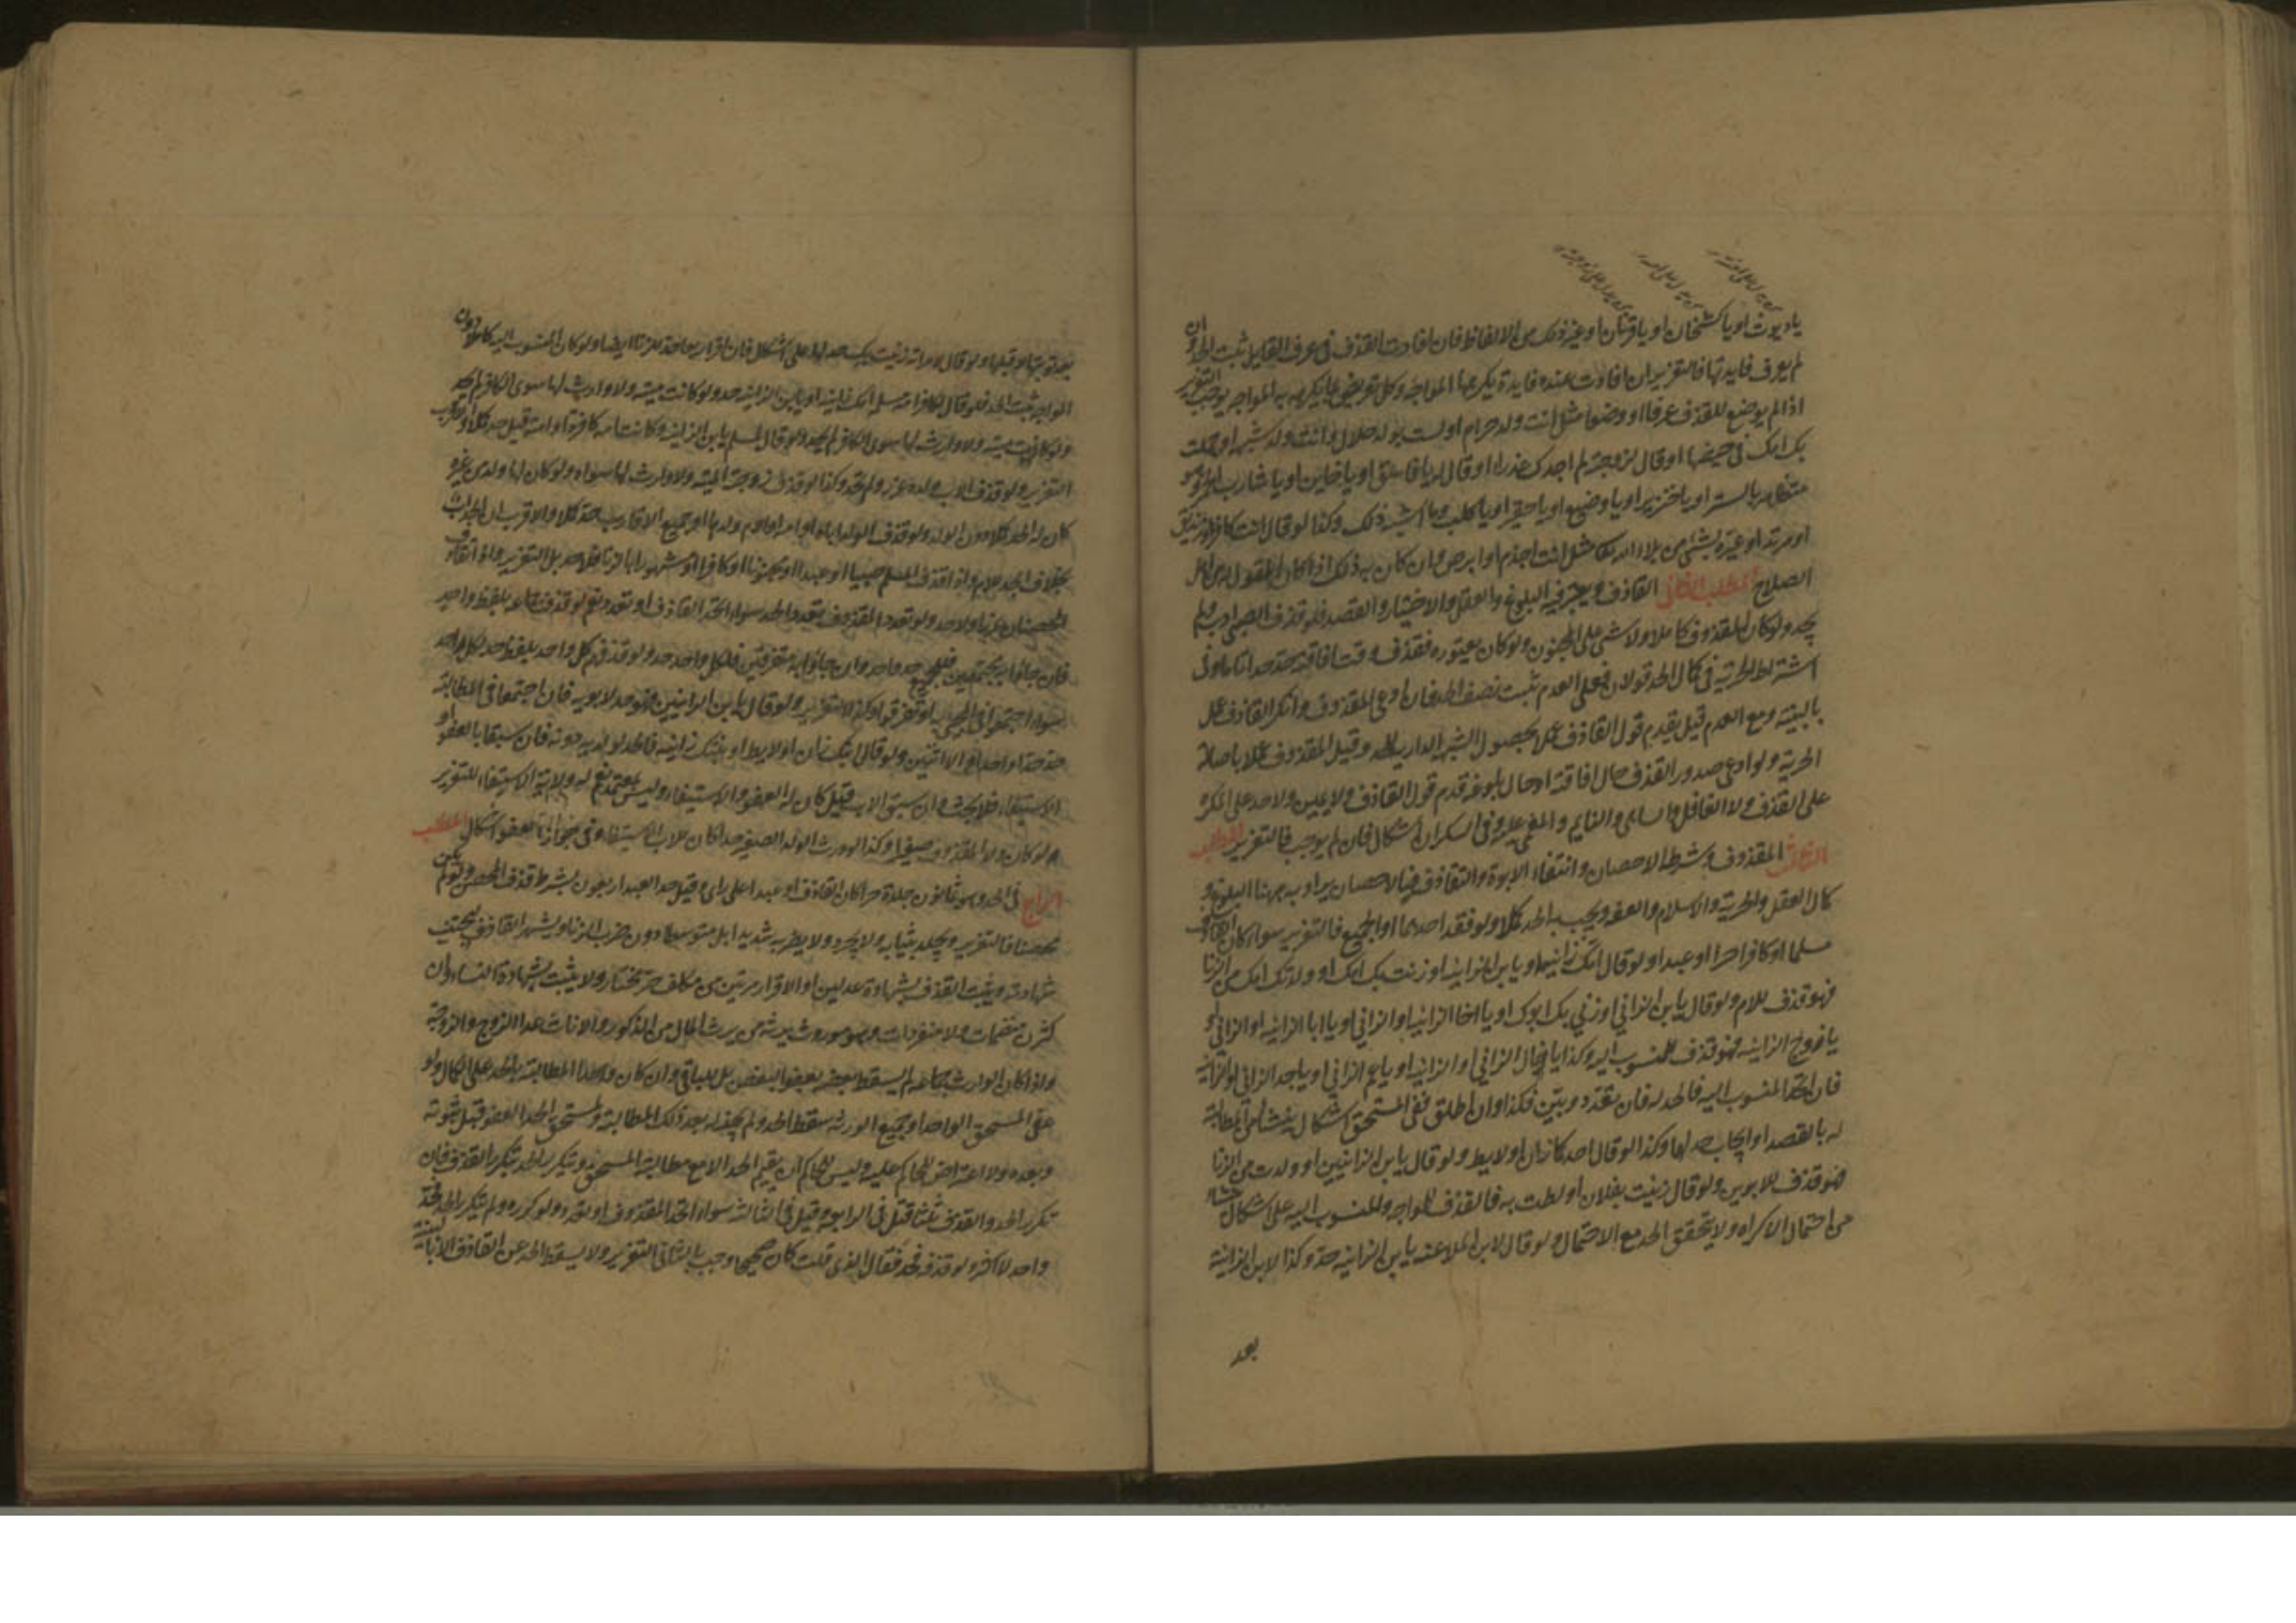 يا ديوث او يا كشخان او يا قرنان او غير ذلك من الالفاظ فان افادت القذف في عرف القايل ثبت الحد وان
لم يعرف فايدتها فالتعزير ان افادت عنده فايدة يكرهها المواجه وكل تعريض بما يكرهه المواجه يوجب التعزير
اذا لم يوضع للقذف عرفا او وضعا مثل انت ولد حرام او لست بولد حلال او انت ولد شبهة او حملت
بك امك في حيضها او قال لزوجته لم اجدك عذراء او قال له يا فاسق او يا خاين او يا شارب الخمر وهو
متظاهر بالستر او يا خنزير او يا وضيع او يا حقير او يا كلب وما اشبه ذلك وكذا لو قال انت كافر او زنديق
او مرتد او عيره بشيء من بلاء الله تعالى مثل انت اجذم او ابرص وان كان به ذلك اذا كان المقول له من اهل
الصلاح المطلب الثاني القاذف ويعتبر فيه البلوغ والعقل والاختيار والقصد فلو قذف الصبي ادب ولم
يحد ولو كان المقذوف كاملا ولا شيء على المجنون ولو كان يعتوره فقذف وقت افاقته حد حدا تاما وفي
اشتراط الحرية في كمال الحد قولان فعلى العدم ثبت نصف الحد فان ادعى المقذوف وانكر القاذف عمل
بالبينة ومع العدم قيل يقدم قول القاذف عملا بحصول الشبهة الدارية للحد وقيل المقذوف عملا باصالة
الحرية ولو ادعى صدور القذف حال افاقته او حال بلوغه قدم قول القاذف ولا يمين ولا حد على المكره
على القذف ولا الغافل والساهي والنايم والمغمى عليه وفي السكران اشكال فان لم يوجب فالتعزير المطلب
الثالث المقذوف ويشترط الاحصان وانتفاء الابوة والتقاذف فالاحصان يراد به هنا البلوغ و
كمال العقل والحرية والاسلام والعفة ويجب الحد كملا ولو فقد احدها او الجميع فالتعزير سواء كان القاذف
مسلما او كافرا حرا او عبدا ولو قال امك زانية او يا ابن الزانية او زنت بك امك او ولدتك امك من الزنا
فهو قذف للام ولو قال يا بن الزاني او زني بك ابوك او يا اخا الزانية او الزاني او يا ابا الزانية او الزاني او
يا زوج الزانية فهو قذف للمنسوب اليه وكذا يا خال الزاني او الزانية او يا عم الزاني او يا جد الزاني او الزانية
فان اتحد المنسوب اليه فالحد له فان تعدد وبين فكذا وان اطلق ففي المستحق اشكال ينشأ من المطالبة
له بالقصد او ايجاب حد لهما وكذا لو قال احدكما زان او لايط ولو قال يا بن الزانيين او ولدت من الزنا
فهو قذف للابوين ولو قال زنيت بفلان او لطت به فالقذف للمواجه وللمنسوب اليه على اشكال ينشأ
من احتمال الاكراه ولا يتحقق الحد مع الاحتمال ولو قال لابن الملاعنة يا بن الزانية حد وكذا لابن الزانية
بعد
بعد توبتها لا قبلها ولو قال لامراة زنيت بك حد لها على اشكال فان اقر اربعا حد للزنا ايضا ولو كان المنسوب اليه كاملا دون
المواجه ثبت الحد فلو قال لكافر امه مسلمة امك زانية او يا بن الزانية حد ولو كانت ميتة ولا وارث لها سوى الكافر لم يحد
ولو قال لمسلم يا بن الزانية وكانت امه كافرة او امة قيل حد كملا والاقرب
التعزير ولو قذف الاب ولده عزر ولم يحد وكذا لو قذف زوجته الميتة ولا وارث لها سواه ولو كان لها ولد من غيره
كان له الحد كملا دون الولد ولو قذف الولد اباه او امه او ام ولدها او جميع الاقارب حد كملا والاقرب ان الجد للاب
بخلاف الجد للام واذا قذف المسلم صبيا او عبدا او مجنونا او كافرا او مشهورا بالزنا فلا حد بل التعزير واذا تقاذف
المحصنان عزرا ولا حد ولو تعدد المقذوف تعدد الحد سواء اتحد القاذف او تعدد نعم لو قذف جماعة بلفظ واحد
فان جاؤا به مجتمعين فللجميع حد واحد وان جاؤا به متفرقين فلكل واحد حد ولو قذف كل واحد بلفظ حد لكل واحد
سواء اجتمعوا في المجيء به او تفرقوا وكذا التعزير ولو قال يا بن الزانيين فهو حد لابويه فان اجتمعا في المطالبة
حد حدا واحدا والا اثنين ولو قال ابنك زان او لايط او بنتك زانية فالحد لولديه دونه فان سبقا بالعفو او
الاستيفاء فلا بحث وان سبق الاب قيل كان له العفو والاستيفاء وليس بمعتمد نعم له ولاية الاستيفاء للتعزير
لو كان ولده المقذوف صغيرا وكذا لو ورث الولد الصغير حدا كان للاب الاستيفاء وفي جواز العفو اشكال المطلب
الرابع في الحد وهو ثمانون جلدة حرا كان القاذف او عبدا على راي وقيل حد العبد اربعون بشرط قذف المحصن ولو لم يكن
محصنا فالتعزير ويجلد بثيابه ولا يجرد ولا يضرب شديدا بل متوسطا دون ضرب الزنا ويشهر القاذف لتجتنب
شهادته ويثبت القذف بشهادة عدلين او الاقرار مرتين من مكلف حر مختار ولا يثبت بشهادة النساء وان
كثرن منضمات ولا منفردات وهو موروث يرثه من يرث المال من الذكور والاناث عدا الزوج والزوجة
واذا كان الوارث جماعة لم يسقط بعضه بعفو البعض بل للباقي وان كان واحدا المطالبة بالحد على الكمال ولو
عفى المستحق الواحد او جميع الورثة سقط الحد ولم يجز له بعد ذلك المطالبة ولمستحق الحد العفو قبل ثبوته
وبعده ولا اعتراض للحاكم عليه وليس للحاكم ان يقيم الحد الا مع مطالبة المستحق ويتكرر الحد بتكرر القذف فان
تكرر الحد والقذف ثلثا قتل في الرابعة وقيل في الثالثة سواء اتحد المقذوف او تعدد ولو كرره ولم يتكرر الحد فحد
واحد لا اكثر ولو قذفه فحد فقال الذي قلت كان صحيحا وجب بالثاني التعزير ولا يسقط الحد عن القاذف الا بالبينة